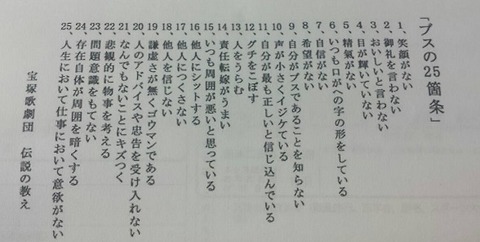 「ブスの25箇条」
1 笑顔がない
2 御礼を言わない
3 おいしいと言わない
4 目が輝いていない
5 精気がない
6 いつも口がへの字の形をしている
7 自信がない
8 希望がない
9 自分がブスであることを知らない
10 声が小さくイジケている
11 自分が最も正しいと信じ込んでいる
12 グチをこぼす
13 人をうらむ
14 責任転嫁がうまい
15 いつも周囲が悪いと思っている
16 他人にシットする
17 他人につくさない
18 他人を信じない
19 謙虚さが無くゴウマンである
20 人のアドバイスや忠告を受け入れない
21 なんでもないことにキズつく
22 悲観的に物事を考える
23 問題意識をもてない
24 存在自体が周囲を暗くする
25 人生において仕事において意欲がない
宝塚歌劇団 伝説の教え